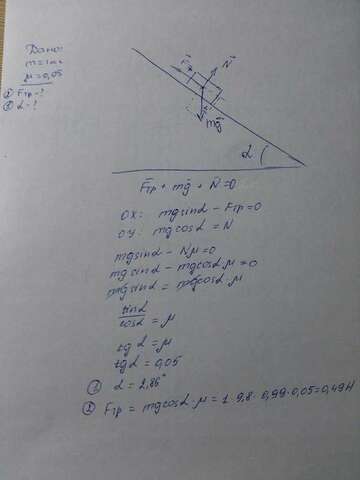 Дано:
m=1кг
μ=0,05
① Fтр-?
② α-?
Fтр
N
mg
α
Fтр + mg + N = 0
OX: mgsinα - Fтр = 0
OY: mgcosα = N
mgsinα - Nμ = 0
mgsinα - mgcosα·μ = 0
mgsinα = mgcosα·μ
sinα
cosα = μ
tgα = μ
tgα = 0,05
α = 2,86°
Fтр = mgcosα·μ = 1·9,8·0,99·0,05 = 0,49Н